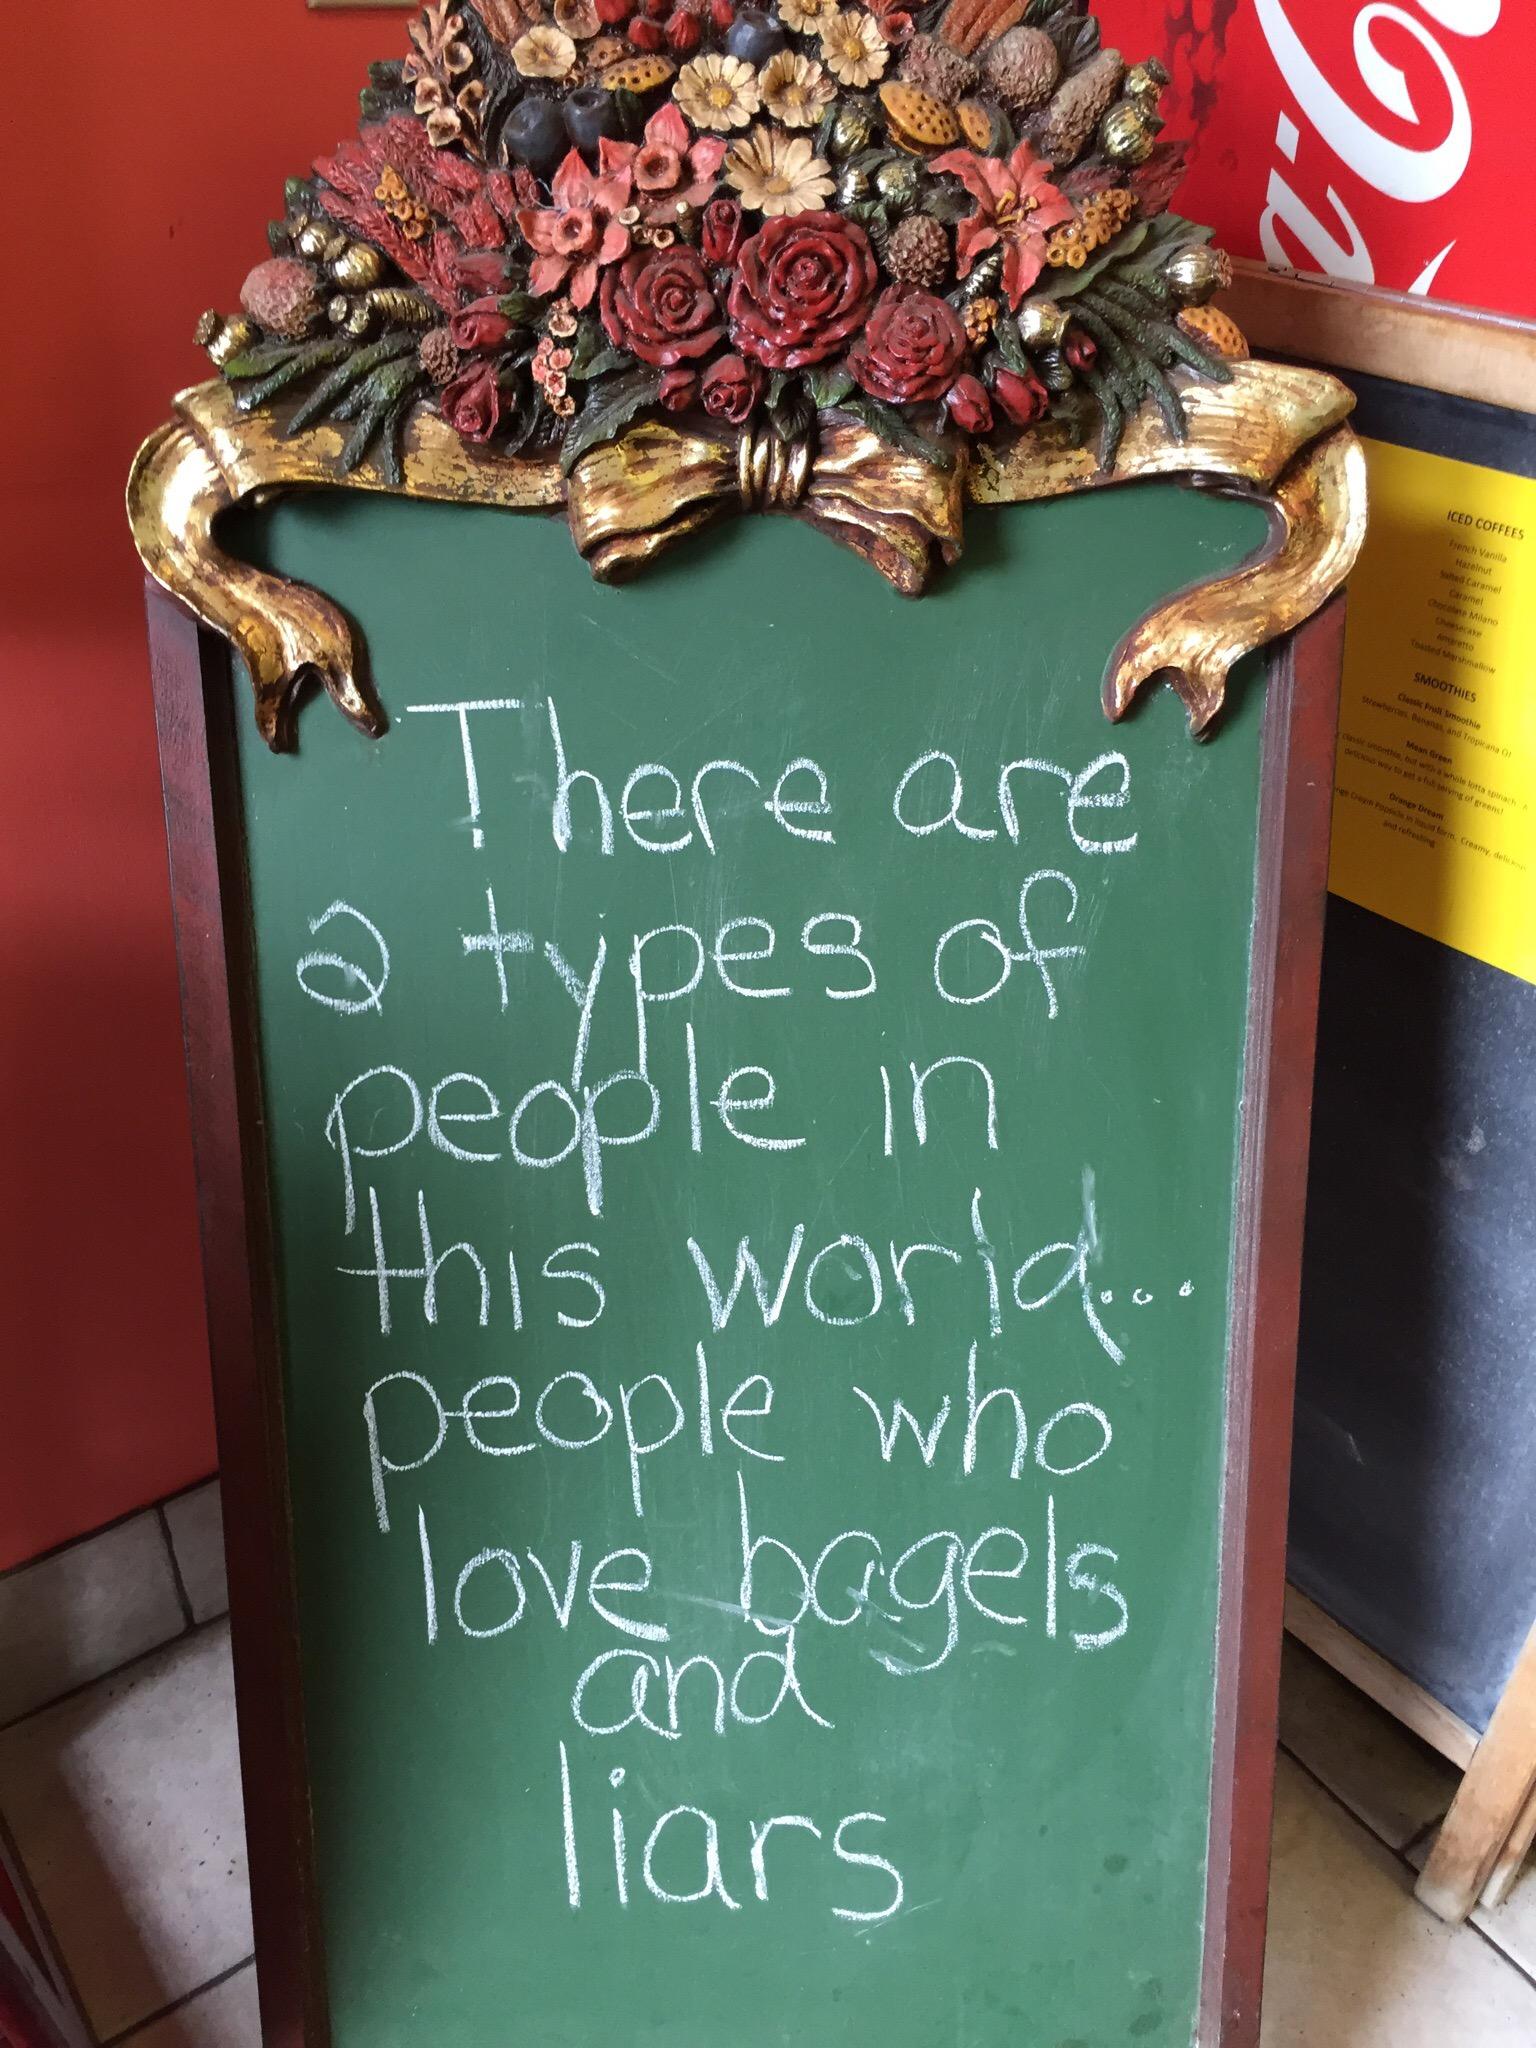 There are
2 types of
people in
this world...
people who
love bagels
and
liars
ICED COFFEES
French Vanilla
Hazelnut
Salted Caramel
Caramel
Chocolate Milano
Cheesecake
Amaretto
Toasted Marshmallow
SMOOTHIES
Classic Fruit Smoothie
Strawberries, Bananas, and Tropicana OJ
Mean Green
classic smoothie, but with a whole lotta spinach. A
delicious way to get a full serving of greens!
Orange Dream
Cream Popsicle in liquid form. Creamy, delicious
and refreshing